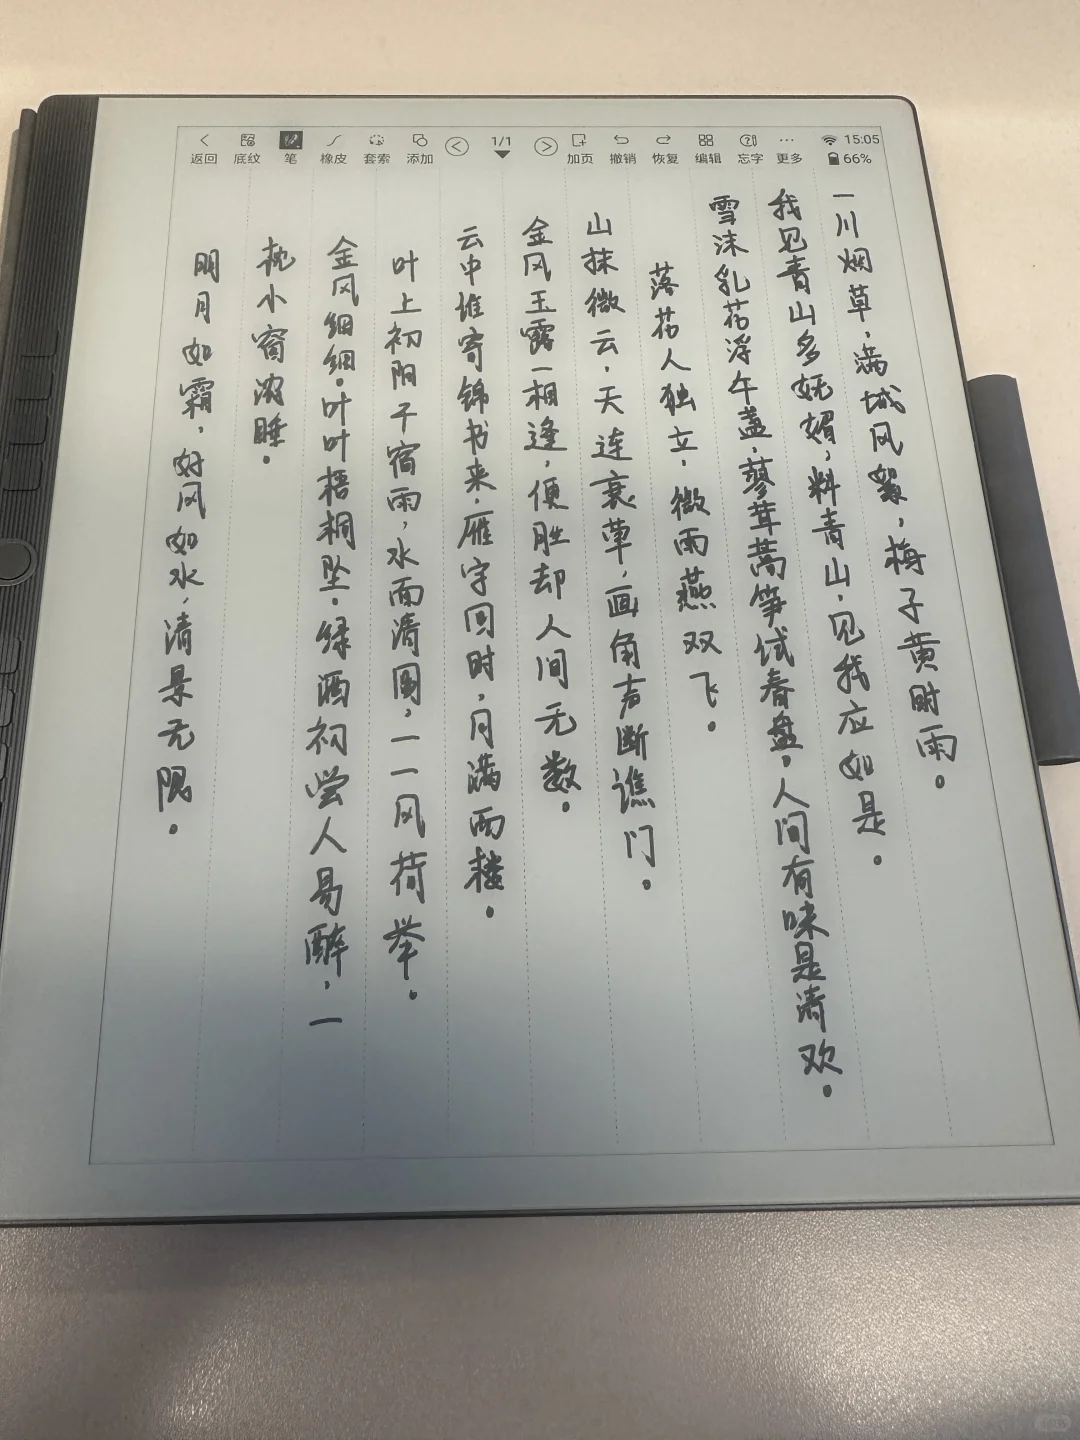 返回 底纹 笔 橡皮 套索 添加 1/1 加页 撤销 恢复 编辑 忘字 更多 15:05 66%
一川烟草，满城风絮，梅子黄时雨。
我见青山多妩媚，料青山，见我应如是。
雪沫乳花浮午盏，蓼茸蒿笋试春盘，人间有味是清欢。
落花人独立，微雨燕双飞。
山抹微云，天连衰草，画角声断谯门。
金风玉露一相逢，便胜却人间无数。
云中谁寄锦书来，雁字回时，月满西楼。
叶上初阳干宿雨，水面清圆，一一风荷举。
金风细细。叶叶梧桐坠。绿酒初尝人易醉，一
枕小窗浓睡。
明月如霜，好风如水，清景无限。